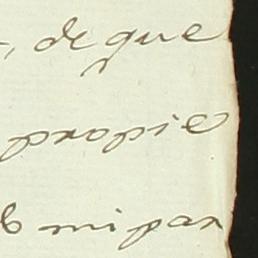 , de que
propie
b mi par